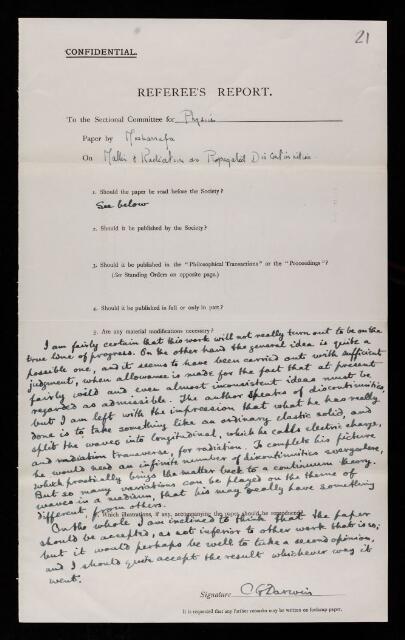 21
CONFIDENTIAL.
REFEREE'S REPORT.
To the Sectional Committee for Physics
Paper by Mosharrafa
On Matter & Radiation as Propagated Discontinuities.
1. Should the paper be read before the Society?
See below
2. Should it be published by the Society?
3. Should it be published in the "Philosophical Transactions" or the "Proceedings"?
(See Standing Orders on opposite page.)
4. Should it be published in full or only in part?
5. Are any material modifications necessary?
I am fairly certain that this work will not really turn out to be on the
true line of progress. On the other hand the general idea is quite a
possible one, and it seems to have been carried out with sufficient
judgment, when allowance is made for the fact that at present
fairly wild and even almost inconsistent ideas must be
regarded as admissible. The author speaks of discontinuities,
but I am left with the impression that what he has really
done is to take something like an ordinary elastic solid, and
split the waves into longitudinal, which he calls electric charge,
and radiation transverse, for radiation. To complete his picture
he would need an infinite number of discontinuities everywhere,
which practically brings the matter back to a continuum theory.
But so many variations can be played on the theme of
waves in a medium, that his may really have something
different from others.
6. Which illustrations, if any, accompanying the paper should be reproduced?
On the whole I am inclined to think that the paper
should be accepted, as not inferior to other work that is so;
but it would perhaps be well to take a second opinion,
and I should quite accept the result whichever way it
went.
Signature C G Darwin
It is requested that any further remarks may be written on foolscap paper.